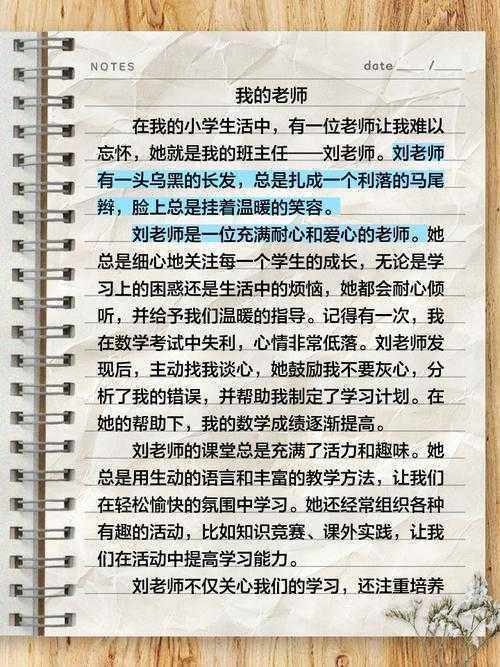 NOTES
date___ /___
我的老师
在我的小学生活中，有一位老师让我难以
忘怀，她就是我的班主任——刘老师。刘老师
有一头乌黑的长发，总是扎成一个利落的马尾
辫，脸上总是挂着温暖的笑容。
刘老师是一位充满耐心和爱心的老师。她
总是细心地关注每一个学生的成长，无论是学
习上的困惑还是生活中的烦恼，她都会耐心倾
听，并给予我们温暖的指导。记得有一次，我
在数学考试中失利，心情非常低落。刘老师发
现后，主动找我谈心，她鼓励我不要灰心，分
析了我的错误，并帮助我制定了学习计划。在
她的帮助下，我的数学成绩逐渐提高。
刘老师的课堂总是充满了活力和趣味。她
总是用生动的语言和丰富的教学方法，让我们
在轻松愉快的氛围中学习。她还经常组织各种
有趣的活动，比如知识竞赛、课外实践，让我
们在活动中提高学习能力。
刘老师不仅关心我们的学习，还注重培养